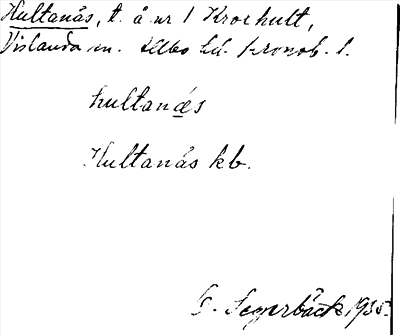 Hultanås, t. å nr 1 Krokhult,
Vislanda sn. Allbo hd. Kronob. l.
hultanås
Hultanås kb.
G. Segerbäck 1935.